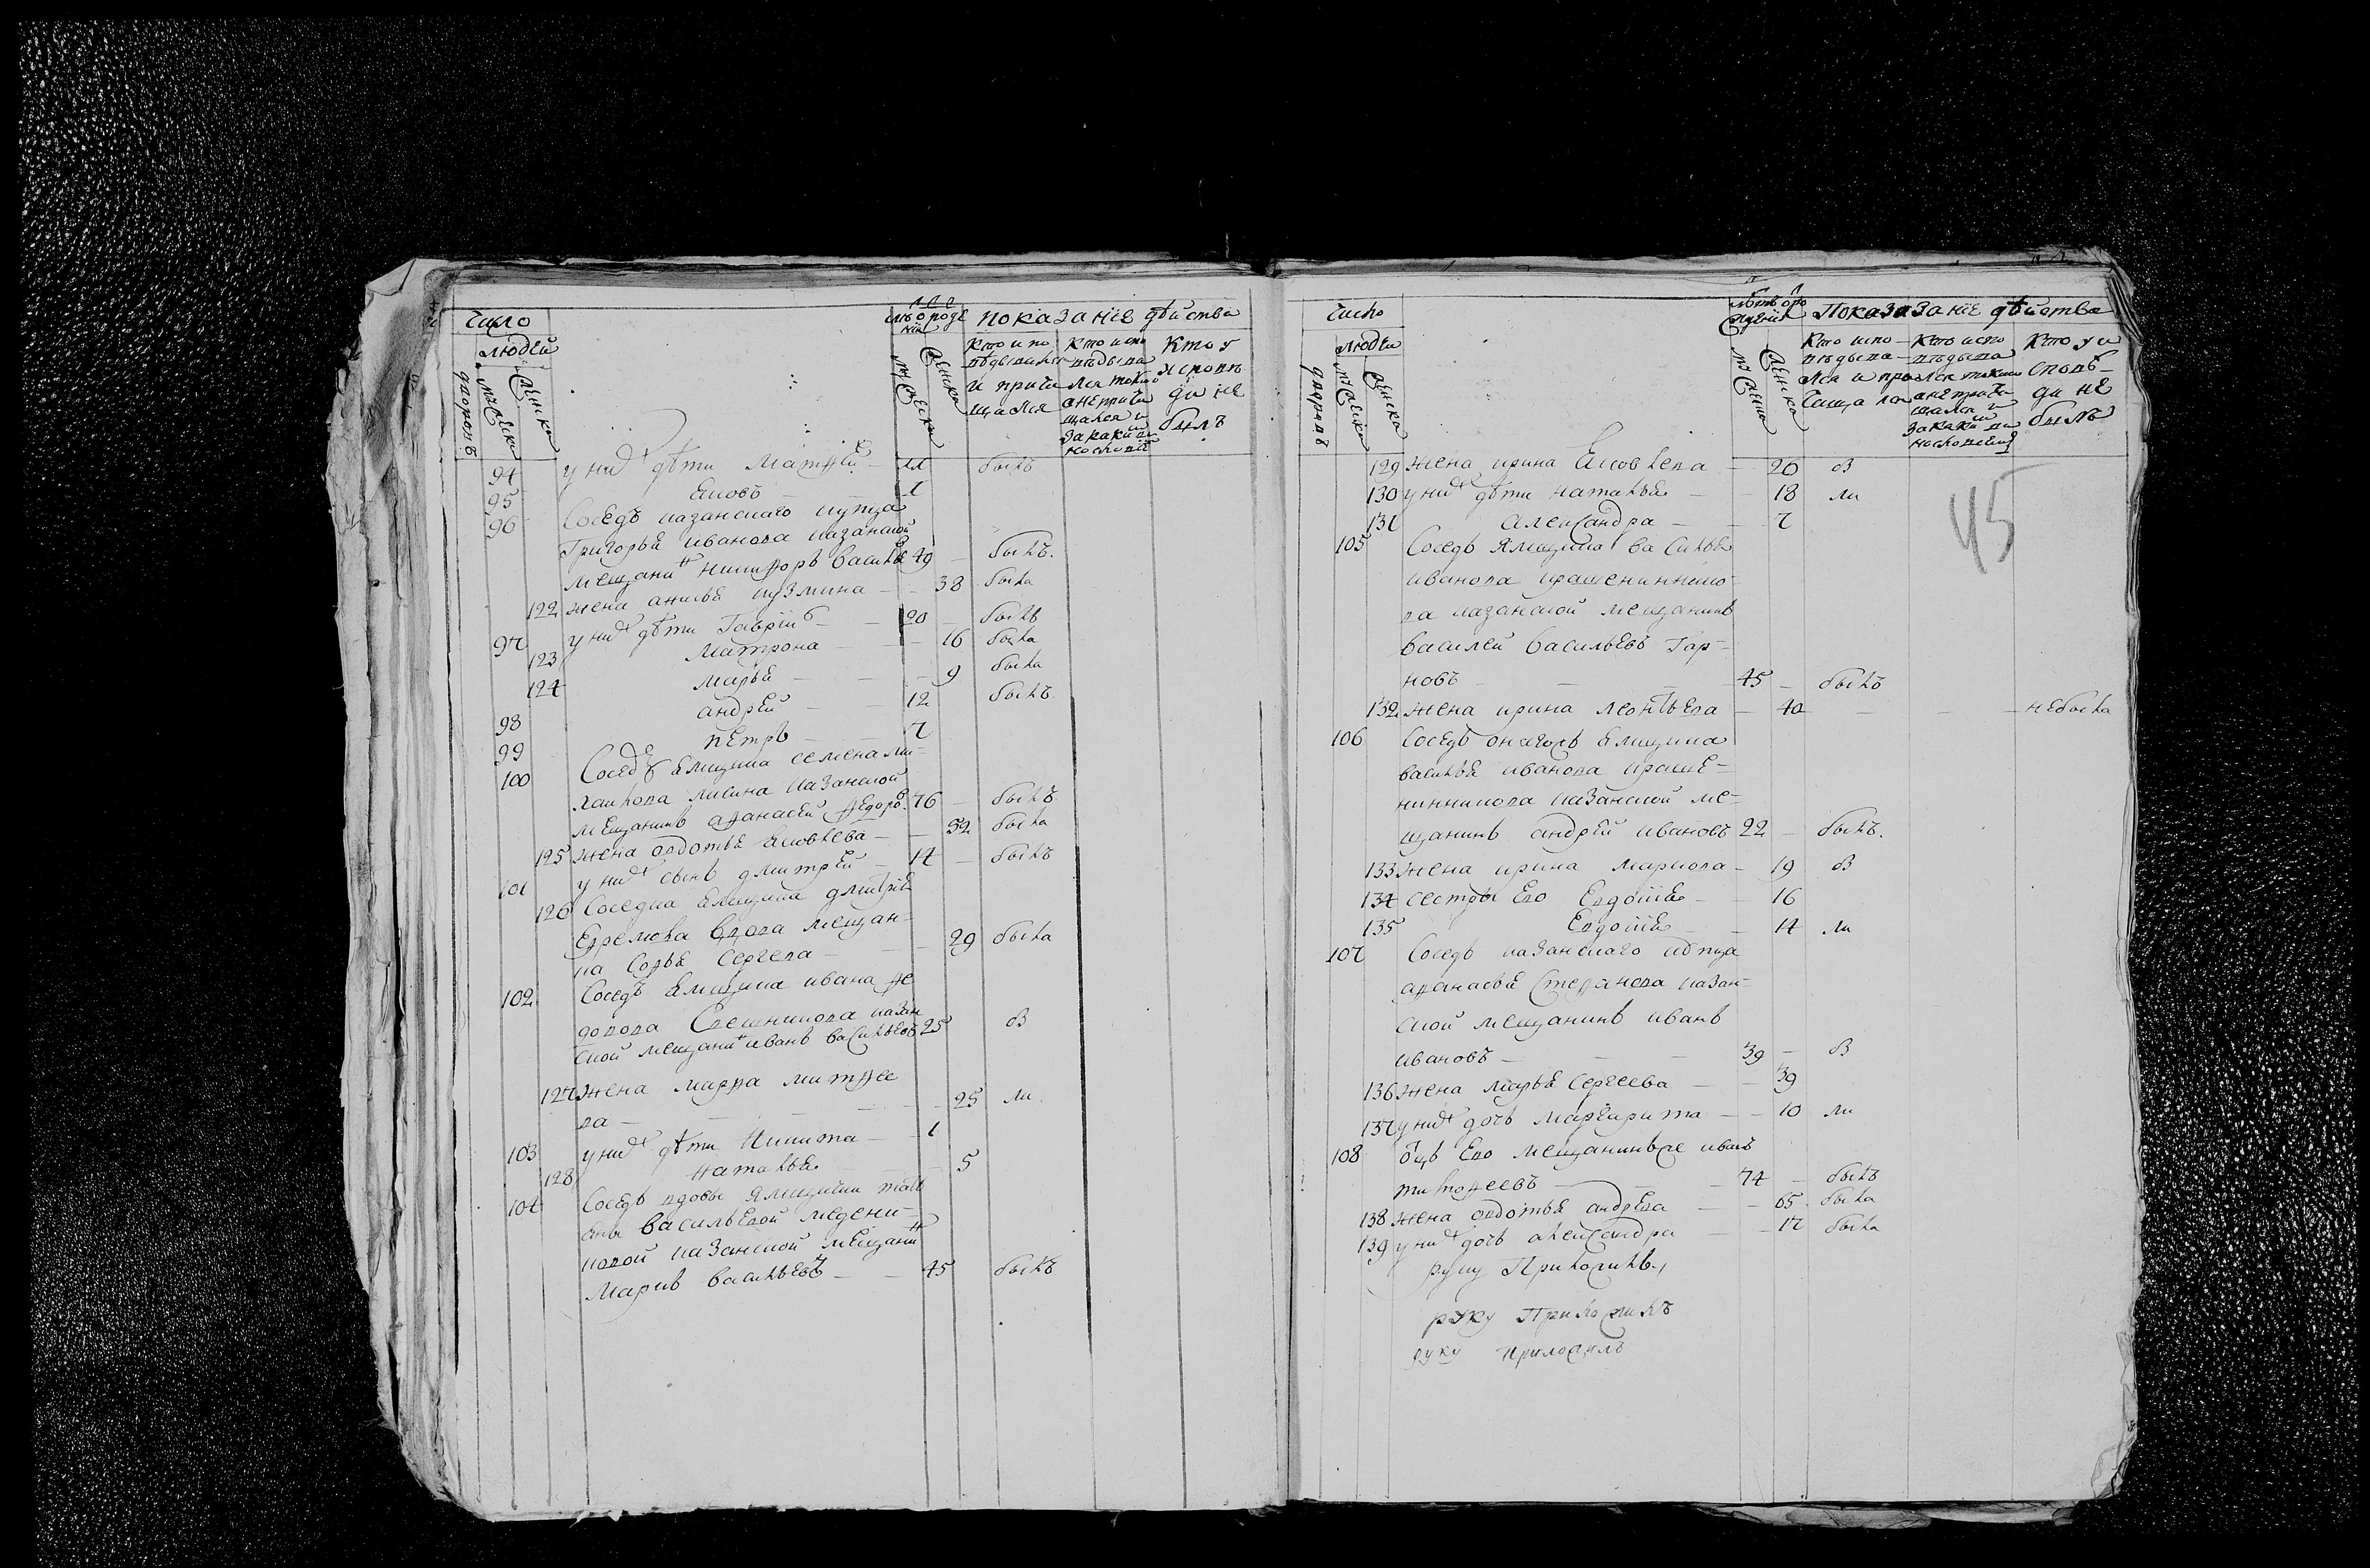 число
людей
дворовъ
мужеска
женска
лѣтъ о роде
нія
мужеска
женска
показаніе дѣйства
кто испо
вѣдывался
и прича
щался
кто испо
вѣдыва
лся токмо
а не прича
щался и
за какой ви
нословіе
кто у
исповѣ
ди не
былъ
94 у них дѣти Матѳей — 11 былъ
95 Яковъ — 1
96 Соседъ казанскаго купца
Григорья иванова казанской
мещанин никифоръ василье 49 — былъ.
122 жена анисья кузмина — 38 была
97 у них дѣти Гаврій — 20 былъ
123 Матрона — 16 была
124 марья — 9 была
98 андрей — 12 былъ
99 петръ — 7
100 Соседъ ямщика семена ми-
хаилова лисина казанской
мещанинъ аѳанасей ѳедоров. 76 — былъ
125 жена авдотья яковлева — 52 была
101 у них сынъ дмитрей — 14 — былъ
126 Соседка ямщика дмитрія
Ефремова вдова мещан-
ка Софья Сергеева — 29 была
102 Соседъ ямщика ивана ѳе
дорова Свешникова казан
ской мещанин иванъ васильевъ 25 б
127 жена марѳа матѳее
ва — 25 ли
103 у них дѣти никита — 1
128 наталья — 5
104 Соседъ вдовы ямщички тать
яны васильевой медени-
ковой казанской мещанин
Маркъ васильевъ — 45 былъ
число
людей
дворовъ
мужеска
женска
лѣтъ о ро
жденія
мужеска
женска
Показазаніе дѣйства
кто испо-
вѣдыва-
лся и при
чаща лся
кто испо
вѣдыва
лся токмо
а не прича
щался и
за какой ви
нословіем
кто у и
сповѣ-
ди не
былъ
45
129 жена ирина Яковлева — 20 б
130 у них дѣти наталья — 18 ли
131 александра — 7
105 Соседъ ямщика василья
иванова крашенинико-
ва казанской мещанинъ
василей васильевъ Гар-
новъ — 45 — былъ
132 жена ирина леонтьева — 40 — небыла
106 Соседъ онагожъ ямщика
василья иванова краше-
нинникова казанской ме-
щанинъ андрей ивановъ 22 — былъ.
133 жена ирина маркова — 19 б
134 сестры Ево Евдокія — 16
135 Евдокія — 14 ли
107 Соседъ казанскаго купца
аѳанасья Стефанова казан-
ской мещанинъ иванъ
ивановъ — 39 — б
136 жена марья Сергеева — 39
137 у них дочь маргарита — 10 ли
108 отцъ Ево мещанинъже иванъ
тимоѳеевъ — 74 — былъ
138 жена авдотья андреева — 65. была
139 у них дочь александра — 17 была
руку Приложилъ,
руку Приложилъ
руку приложилъ